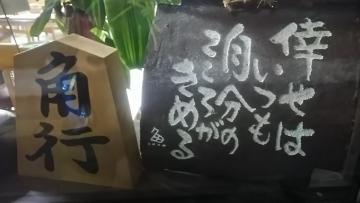 倖せは
いつも
自分の
こころが
きめる
魚
角行